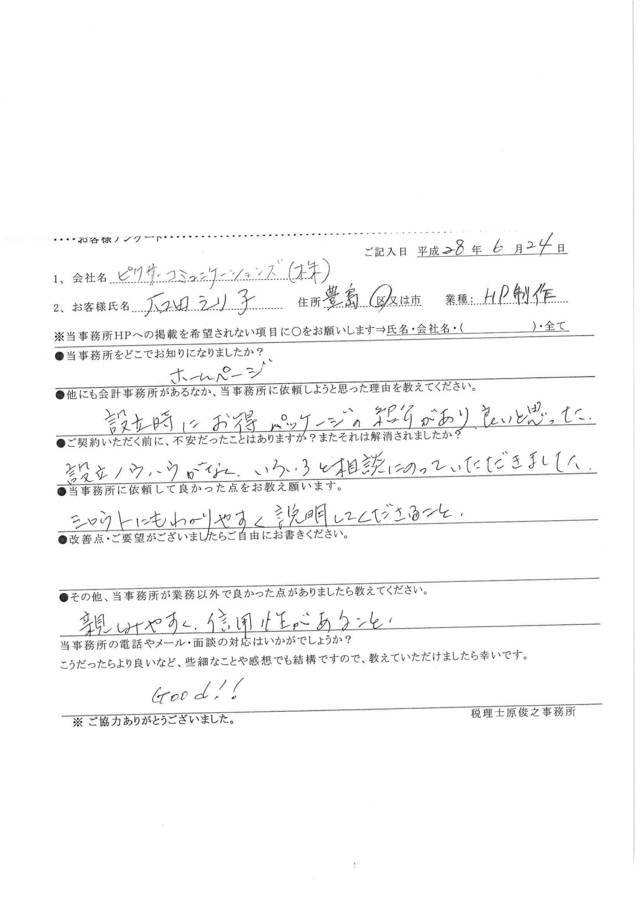 ････お客様アンケート･･････････････････････････････
ご記入日 平成28年6月24日
1、会社名 ピクサーコミュニケーションズ(株)
2、お客様氏名 田 り子 住所 豊島 区又は市 業種:HP制作
※当事務所HPへの掲載を希望されない項目に○をお願いします⇒氏名・会社名・( )・全て
●当事務所をどこでお知りになりましたか?
ホームページ
●他にも会計事務所があるなか、当事務所に依頼しようと思った理由を教えてください。
設立時にお得パッケージの紹介があり、良いと思った。
●ご契約いただく前に、不安だったことはありますか?またそれは解消されましたか?
設立ノウハウがなく、いろいろと相談にのっていただきました。
●当事務所に依頼して良かった点をお教え願います。
シロウトにもわかりやすく説明してくださること。
●改善点・ご要望がございましたらご自由にお書きください。
●その他、当事務所が業務以外で良かった点がありましたら教えてください。
親しみやすく、信用性があること。
当事務所の電話やメール・面談の対応はいかがでしょうか?
こうだったらより良いなど、些細なことや感想でも結構ですので、教えていただけましたら幸いです。
Good!!
※ ご協力ありがとうございました。 税理士原俊之事務所